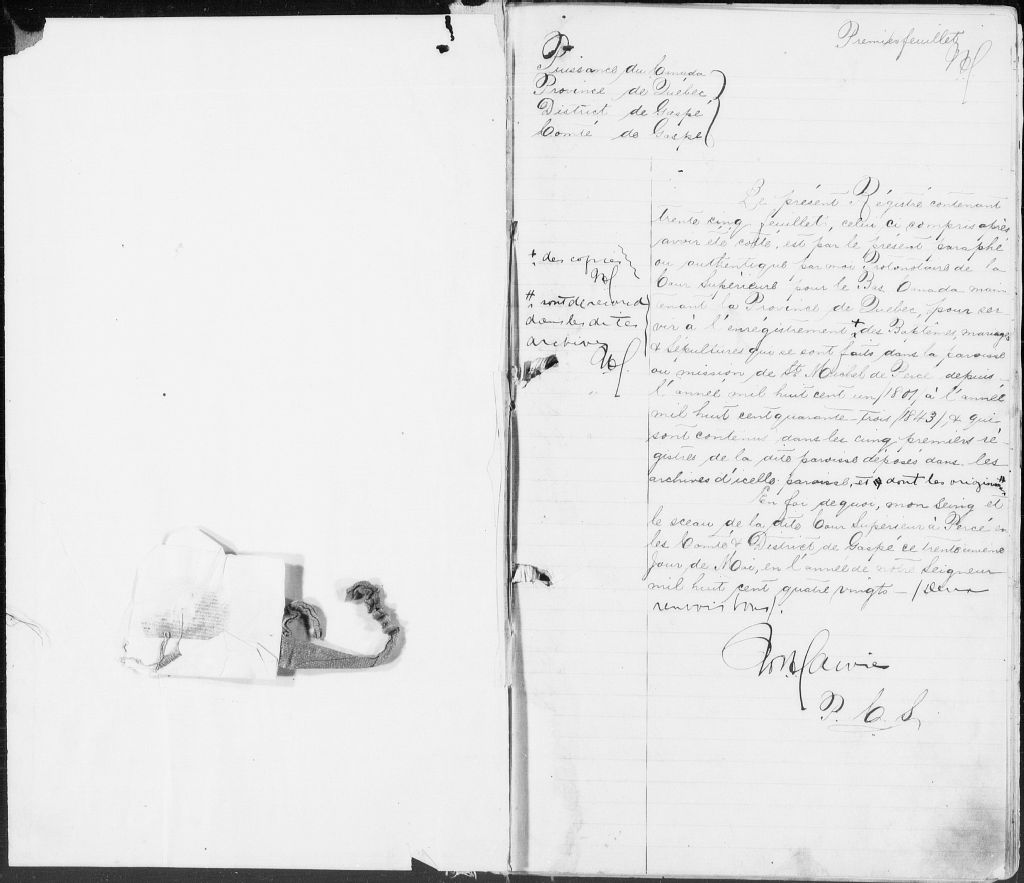 Premier feuillet
Puissance du Canada
Province de Québec
District de Gaspé
Comté de Gaspé
Le présent Régistré contenant
trente cinq feuillet, celui ci compris après
avoir été cotté, est par le présent paraphé
ou authentiqué par moi Protonotaire de la
Cour Supérieure pour le Bas Canada main
tenant la Province de Québec, pour ser
vir à l'enrégistrement + des Baptêmes, mariages
& Sépultures qui se sont faits dans la paroisse
ou mission de St Michel de Percé depuis
l'année mil huit cent un /1801, à l'année
mil huit cent quarante-trois /1843/, & qui
sont contenus dans les cinq premiers ré-
gistres de la dite paroisse déposés dans les
archives d'icelle paroisse, et dont les origin #
En foi de quoi, mon Seing et
le sceau de la dite Cour Superieur à Percé en
les Comté & District de Gaspé ce trente unième
jour de Mai, en l'année de notre Seigneur
mil huit cent quatre vingts - / Deux
renvois bons /.
+ des copies
# sont de record
dans les dites
archives
P. C. S.